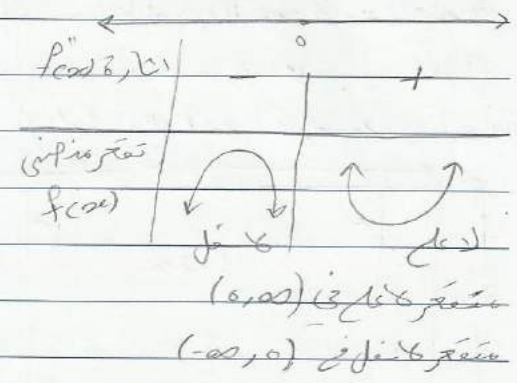 0
اشارة f"(x) - +
تقعر منحنى
f(x)
لاسفل لاعلى
متقعر لاعلى في (0,∞)
متقعر لاسفل في (-∞,0)